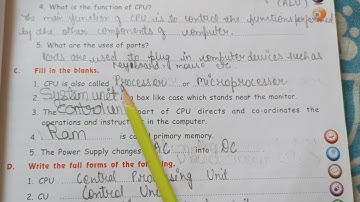 4. What is the function of CPU?
(ALU)
The main function of CPU is to control the functions performed
by the other components of computer.
5. What are the uses of ports?
Ports are used to plug in computer devices such as
keyboard, mouse etc.
C. Fill in the blanks.
1. CPU is also called Processor or Microprocessor
2. System unit is box like case which stands near the monitor.
3. The Control unit part of CPU directs and co-ordinates the
operations and instructions in the computer.
4. Ram is called primary memory.
5. The Power Supply changes AC into DC
D. Write the full forms of the following.
1. CPU Control Processing Unit
2. CU Control Unit